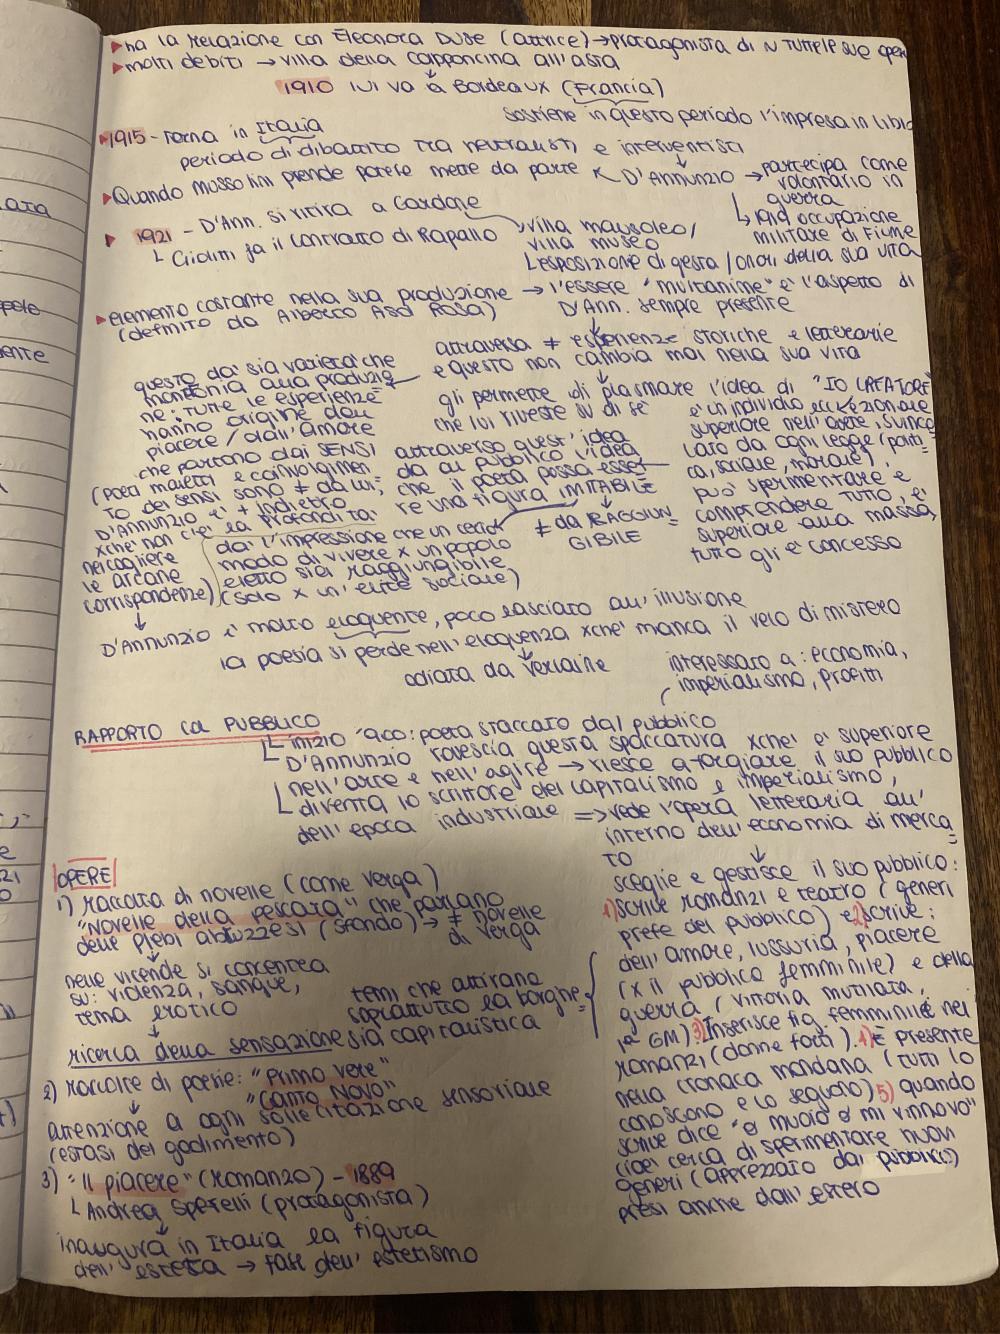 ha la relazione con Eleonora Duse (attrice) → protagonista di tutte le sue oper
molti debiti → villa della Capponcina all'asta
1910 lui va a Bordeaux (Francia)
sostiene in questo periodo l'impresa in Libia
1915 - Torna in Italia
periodo di dibattito tra neutralisti e interventisti
Quando Mussolini prende potere mette da parte ← D'ANNUNZIO → partecipa come
volontario in
guerra
↳ 1919 occupazione
militare di Fiume
1921 - D'Ann. si ritira a Gardone
villa mausoleo/
villa museo
↳ esposizione di gesta/onori della sua vita
Giolitti fa il contratto di Rapallo
elemento costante nella sua produzione → l'essere "multanime" è l'aspetto di
(definito da Alberto Asor Rosa)
D'Ann. sempre presente
attraversa ≠ esperienze storiche e letterarie
e questo non cambia mai nella sua vita
questo dà sia varietà che
monotonia alla produzio
ne: tutte le esperienze
hanno origine dal
piacere / dall'amore
che partono dai SENSI
(poeti maledetti e coinvolgimen
to dei sensi sono ≠ da lui;
D'Annunzio è + indietro
xchè non c'è la profondità
nel cogliere
le arcane
corrispondenze)
gli permette di plasmare l'idea di "IO CREATORE"
che lui riveste su di sé
è un individuo eccezionale
superiore nell'agire, svinco
lato da ogni legge (politi
ca, sociale, morale),
può sperimentare e
comprendere TUTTO, è
superiore alla massa,
tutto gli è concesso
attraverso quest'idea
dà al pubblico l'idea
che il poeta possa esse
re una figura IMITABILE
≠ da RAGGIUN
GIBILE
dà l'impressione che un certo
modo di vivere x un popolo
eletto sia raggiungibile
(solo x un'élite sociale)
D'Annunzio è molto eloquente, poco lasciato all'illusione
la poesia si perde nell'eloquenza xchè manca il velo di mistero
odiata da Verlaine
interessato a: economia,
imperialismo, profitti
RAPPORTO COL PUBBLICO
inizio '900: poeta staccato dal pubblico
D'Annunzio rovescia questa spaccatura xchè è superiore
nell'arte e nell'agire → riesce a forgiare il suo pubblico
diventa lo scrittore del capitalismo e imperialismo,
dell'epoca industriale => vede l'opera letteraria all'
interno dell'economia di merca
to
sceglie e gestisce il suo pubblico:
1) scrive romanzi e teatro (generi
prefe del pubblico) e 2) scrive:
dell'amore, lussuria, piacere
(x il pubblico femminile) e della
guerra (vittoria mutilata,
1ª GM) 3) Inserisce fig. femminile nei
romanzi (donne forti). 4) È presente
nella cronaca mondana (tutti lo
conoscono e lo seguono) 5) quando
scrive dice "o muoio o mi rinnovo"
cioè cerca di sperimentare nuovi
generi (apprezzato dal pubblico)
presi anche dall'estero
OPERE
1) raccolta di novelle (come Verga)
"Novelle della Pescara" che parlano
delle plebi abruzzesi (sfondo) → ≠ novelle
di Verga
nelle vicende si concentra
su: violenza, sangue,
tema erotico
temi che attirano
soprattutto la borghe
sia capitalistica
ricerca della sensazione
2) raccolte di poesie: "Primo vere"
"Canto novo"
attenzione a ogni sollecitazione sensoriale
(estasi del godimento)
3) "Il piacere" (romanzo) - 1889
Andrea Sperelli (protagonista)
inaugura in Italia la figura
dell'esteta → fase dell'estetismo